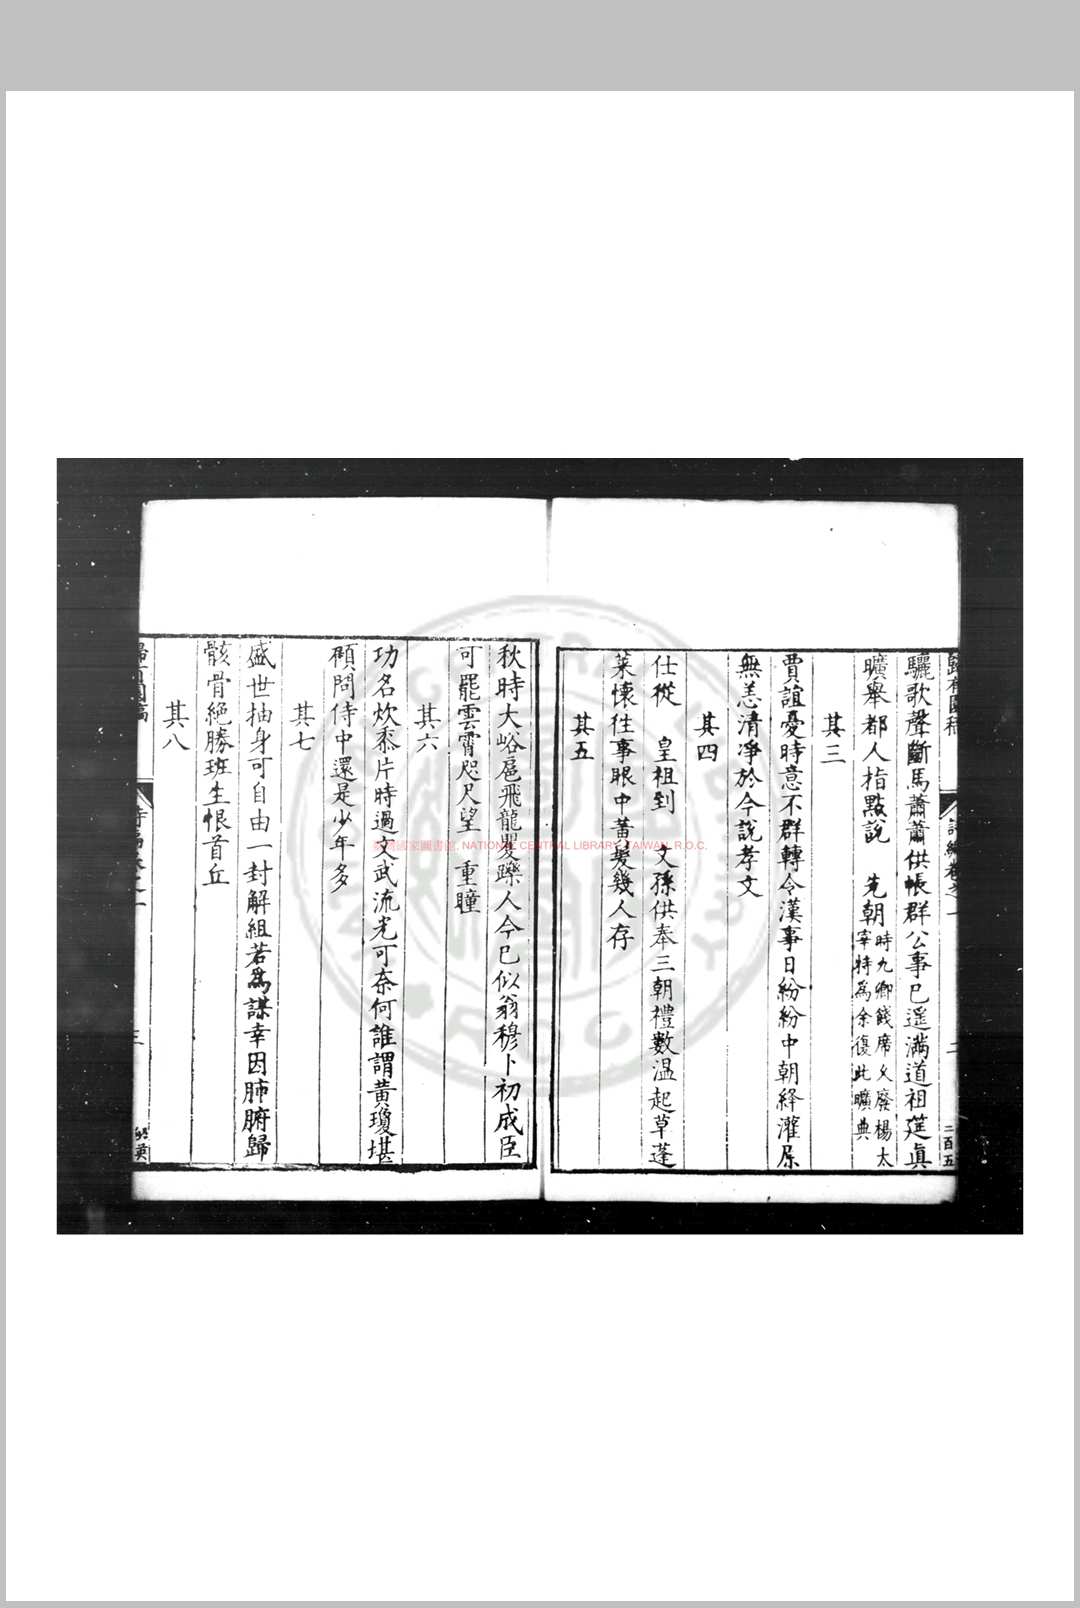 驪歌聲斷馬蕭蕭供帳群公事已遥滿道祖筵真
曠舉都人指點說 先朝時九卿餞席久廢楊太宰特為余復此曠典
其三
賈誼憂時意不群轉令漢事日紛紛中朝絳灌屡
無恙清凈於今說孝文
其四
仕從 皇祖到 文孫供奉三朝禮數温起草蓬
萊懷徃事眼中黃髮幾人存
其五
秋時大峪扈飛龍矍鑠人今已似翁穆卜初成臣
可罷雲霄咫尺望 重瞳
其六
功名炊黍片時過文武流光可奈何誰謂黃瓊堪
頋問侍中還是少年多
其七
盛世抽身可自由一封解組若為謀幸因肺腑歸
骸骨絶勝班生恨首丘
其八
歸有園稿
詩編卷之一
二
二百五
三
臺灣國家圖書館, NATIONAL CENTRAL LIBRARY,TAIWAN, R.O.C.